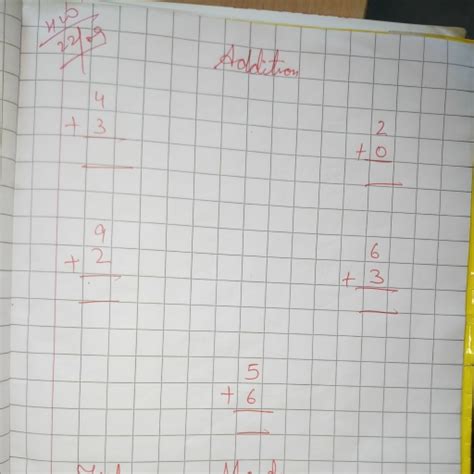 H/W
22/09
Addition
4
+ 3
2
+ 0
9
+ 2
6
+ 3
5
+ 6